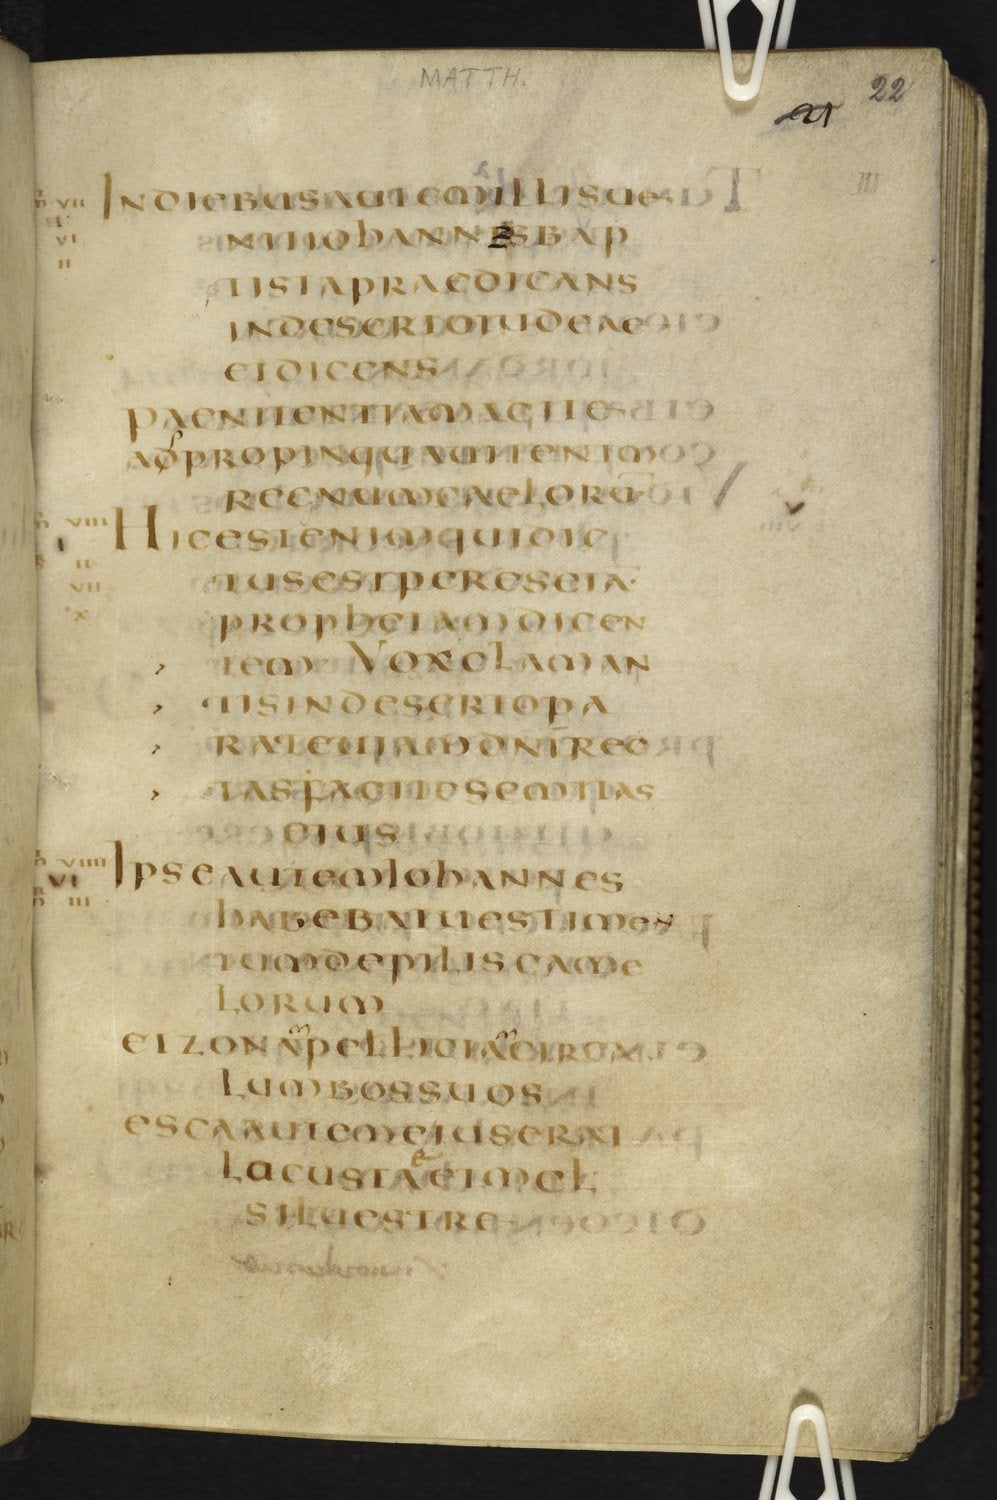 MATTH.
22
21
VII INDIEBUSAUTEMILLISUE
VI NITIOHANNESBAP
II TISTAPRAEDICANS
INDESERTOIUDEAE
ETDICENS
PAENITENTIAMAGITE
ADPROPINQUAUITENIM
REGNUMCAELORŪ
VIII HICESTENIMQUIDIC
I II TUSESTPERESEIĀ
VII PROPHETAMDICEN
X TEM VOXCLAMAN
TISINDESERTOPA
RATEUIAMDNĪREC
TASFACITESEMITAS
EIUS
VIIII IPSEAUTEMIOHANNES
VI III HABEBATUESTIMEN
TUMDEPILISCAME
LORUM
ETZONAMPELLICIAMCIRCA
LUMBOSSUOS
ESCAAUTEMEIUSERAT
LACUSTAEETMEL
SILUESTRE